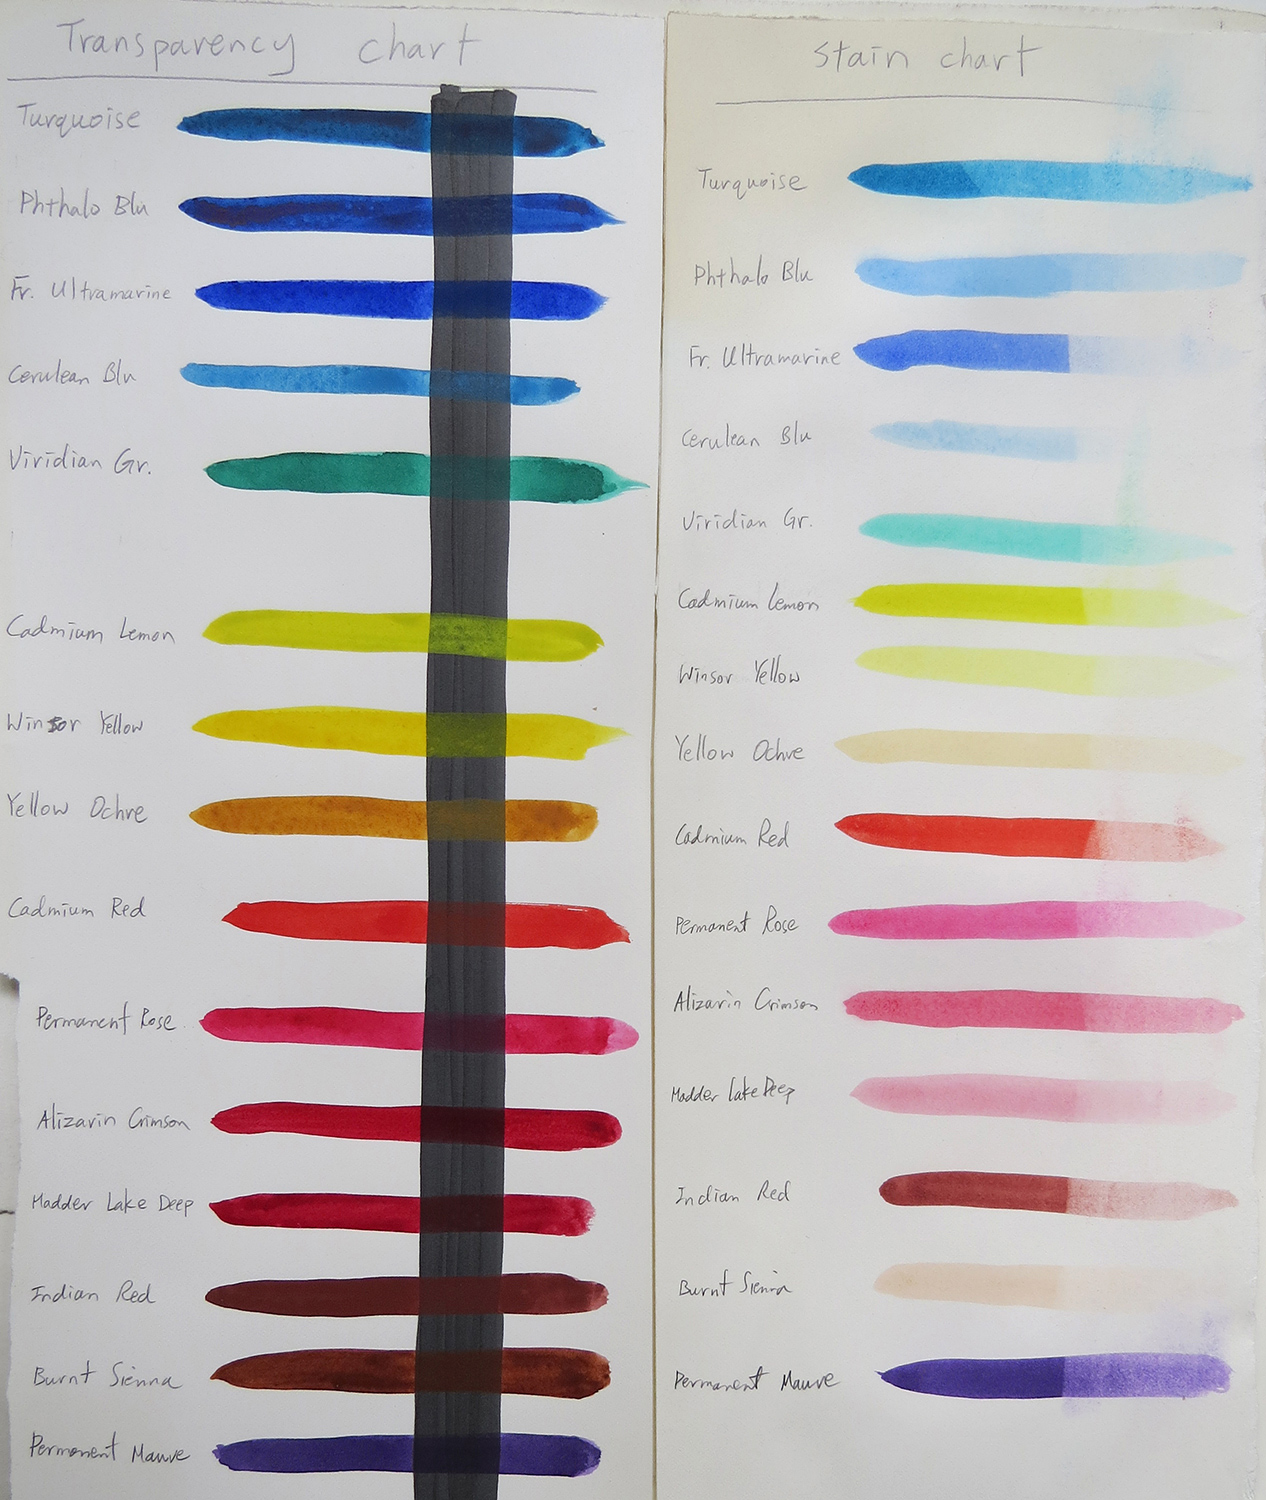 Transparency chart
Turquoise
Phthalo Blu
Fr. Ultramarine
Cerulean Blu
Viridian Gr.
Cadmium Lemon
Winsor Yellow
Yellow Ochre
Cadmium Red
Permanent Rose
Alizarin Crimson
Madder Lake Deep
Indian Red
Burnt Sienna
Permanent Mauve
Stain chart
Turquoise
Phthalo Blu
Fr. Ultramarine
Cerulean Blu
Viridian Gr.
Cadmium Lemon
Winsor Yellow
Yellow Ochre
Cadmium Red
Permanent Rose
Alizarin Crimson
Madder Lake Deep
Indian Red
Burnt Sienna
Permanent Mauve